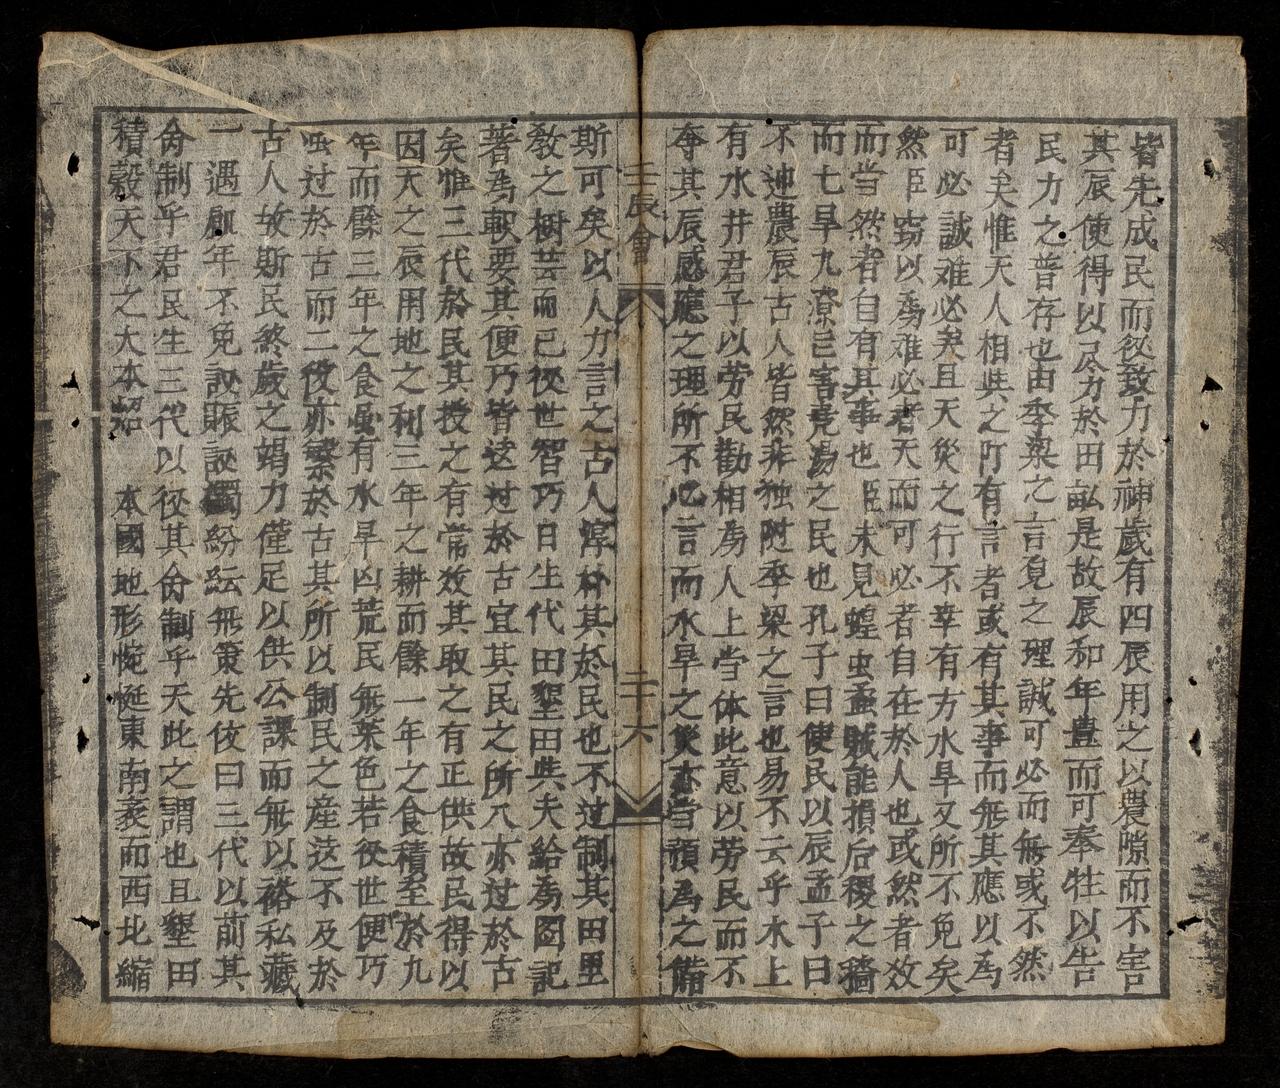 皆先成民而後致力於神歲有四辰用之以農隙而不害
其辰使得以尽力於田畝是故辰和年豊而可奉牲以告
民力之普存也由季梁之言見之理誠可必而無或不然
者矣惟天人相與之际有言者或有其事而無其應以爲
可必誠难必矣且天災之行不幸有方水旱又所不免矣
然臣窃以爲难必者天而可必者自在於人也或然者效
而当然者自有其事也臣未見蝗虫蟊賊能損后稷之穡
而七旱九潦已害堯湯之民也孔子曰使民以辰孟子曰
不違農辰古人皆然非独随季梁之言也易不云乎水上
有水井君子以劳民勸相爲人上当体此意以劳民而不
奪其辰感應之理所不必言而水旱之災亦当預爲之備
壬辰會
二十六
斯可矣以人力言之古人淳朴其於民也不过制其田里
敎之樹芸而已後世智巧日生代田墾田與夫給爲图記
著爲軟要其便巧皆遠过於古宜其民之所入亦过於古
矣惟三代於民其授之有常效其取之有正供故民得以
因天之辰用地之利三年之耕而餘一年之食積至於九
年而餘三年之食虽有水旱凶荒民無菜色若後世便巧
虽过於古而二役亦繁於古其所以制民之産遠不及於
古人故斯民終歲之竭力僅足以供公課而無以裕私藏
一遇歉年不免議賑議蠲紛紜無策先儒曰三代以前其
命制乎君民生三代以後其命制乎天此之謂也且墾田
積穀天下之大本 本國地形蜿蜒東南袤而西北縮